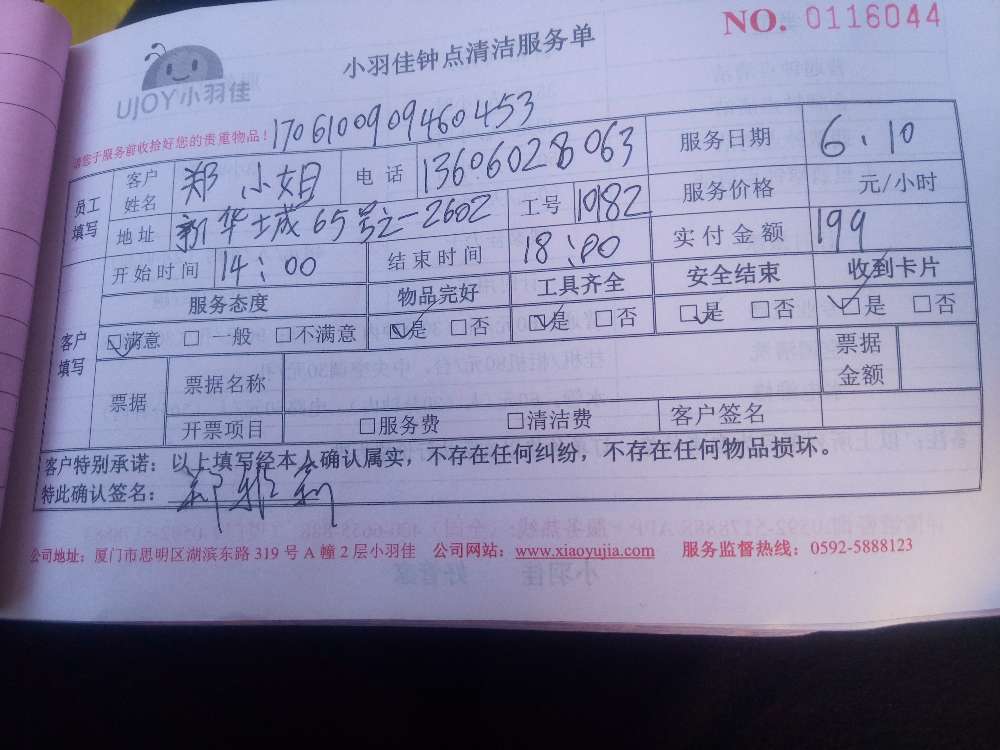 NO. 0116044
UJOY小羽佳
小羽佳钟点清洁服务单
请您于服务前收拾好您的贵重物品! 1706100909460453
员工填写 客户姓名 郑小姐 电话 13606028063 服务日期 6.10
地址 新华城65号之一2602 工号 10182 服务价格 元/小时
开始时间 14:00 结束时间 18:00 实付金额 199
客户填写 服务态度 物品完好 工具齐全 安全结束 收到卡片
☑满意 □一般 □不满意 ☑是 □否 ☑是 □否 ☑是 □否 ☑是 □否
票据 票据名称 票据金额
开票项目 □服务费 □清洁费 客户签名
客户特别承诺:以上填写经本人确认属实,不存在任何纠纷,不存在任何物品损坏。
特此确认签名:
公司地址:厦门市思明区湖滨东路 319 号 A 幢 2 层小羽佳 公司网站:www.xiaoyujia.com 服务监督热线:0592-5888123